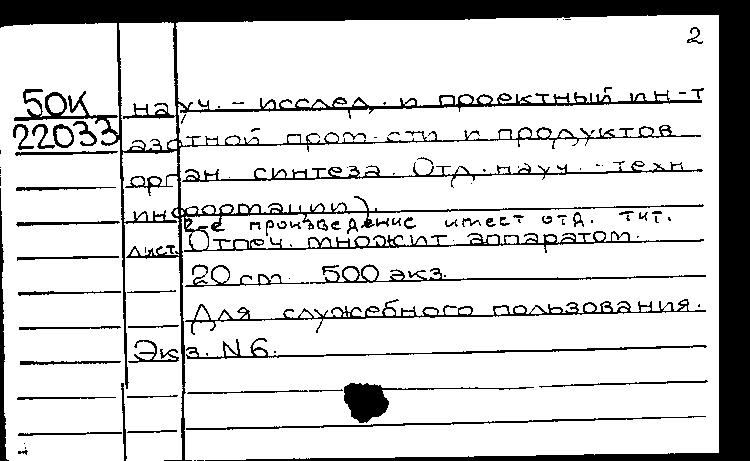 2
50К науч. - исслед. и проектный ин-т
22033 азотной пром-сти и продуктов
орган. синтеза. Отд. науч. - техн
информации).
2-е произведение имеет отд. тит.
лист. Отпеч. множит. аппаратом.
20 см 500 экз.
Для служебного пользования.
Экз. N 6.